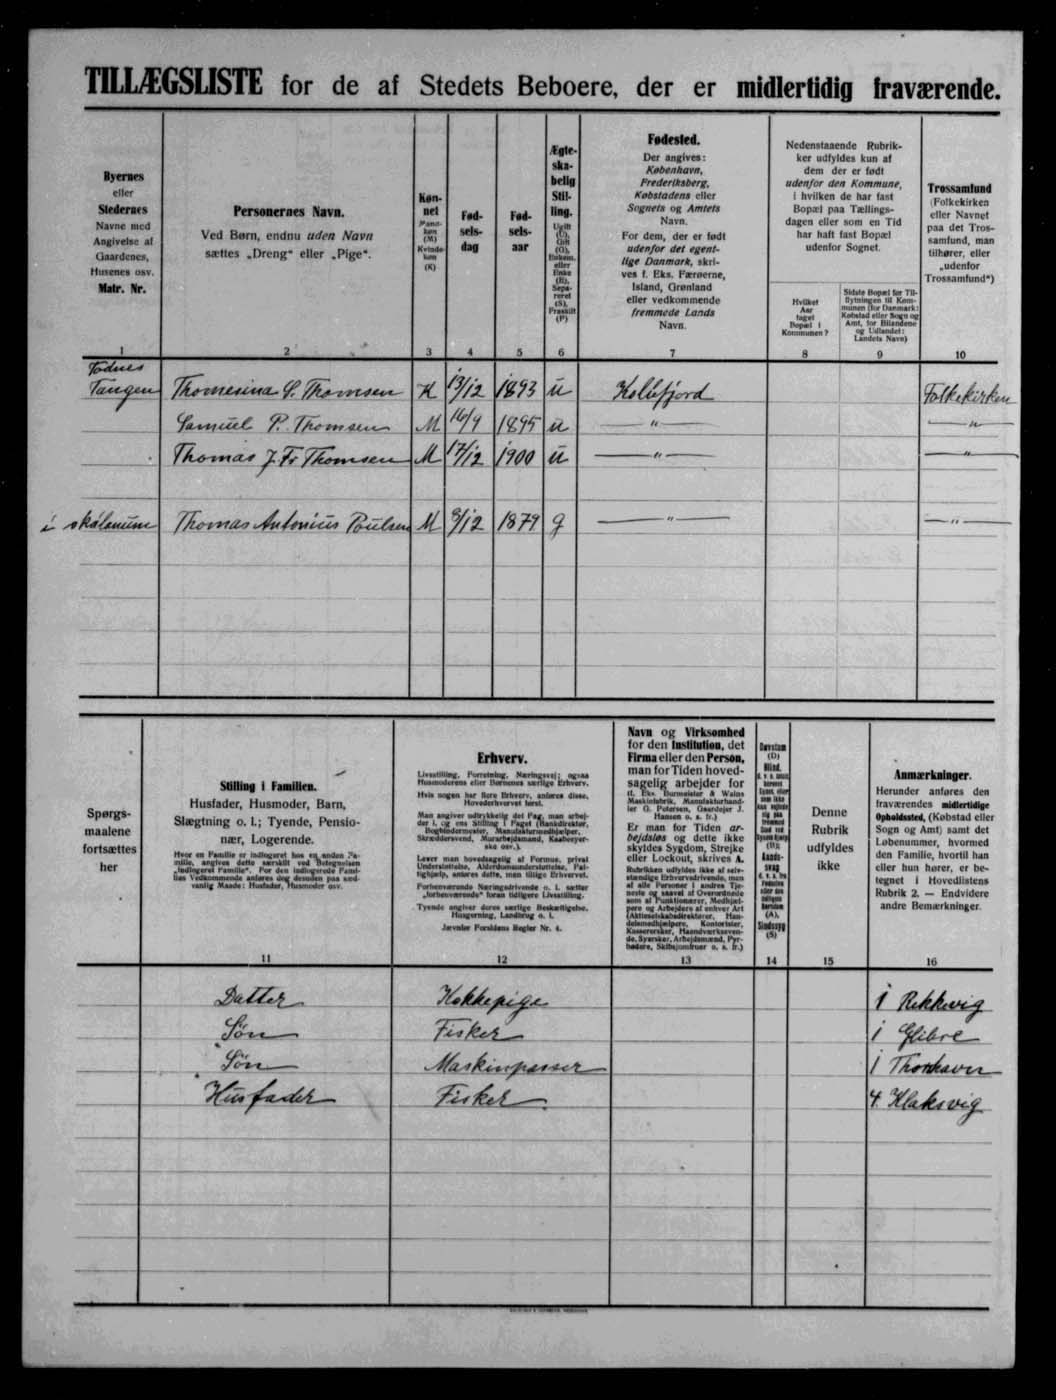 TILLÆGSLISTE for de af Stedets Beboere, der er midlertidig fraværende.
Byernes
eller
Stedernes
Navne med
Angivelse af
Gaardenes,
Husenes osv.
Matr. Nr.
1
Personernes Navn.
Ved Børn, endnu uden Navn
sættes „Dreng“ eller „Pige“.
2
Køn-
net
Mand-
køn
(M)
Kvinde-
køn
(K)
3
Fød-
sels-
dag
4
Fød-
sels-
aar
5
Ægte-
ska-
belig
Stil-
ling.
Ugift
(U),
Gift
(G),
Enkem.
eller
Enke
(E),
Sepa-
reret
(S),
Fraskilt
(F)
6
Fødested.
Der angives:
København,
Frederiksberg,
Købstadens eller
Sognets og Amtets
Navn.
For dem, der er født
udenfor det egent-
lige Danmark, skri-
ves f. Eks. Færøerne,
Island, Grønland
eller vedkommende
fremmede Lands
Navn.
7
Nedenstaaende Rubrik-
ker udfyldes kun af
dem der er født
udenfor den Kommune,
i hvilken de har fast
Bopæl paa Tællings-
dagen eller som en Tid
har haft fast Bopæl
udenfor Sognet.
Hvilket
Aar
taget
Bopæl i
Kommunen?
8
Sidste Bopæl før Til-
flytningen til Kom-
munen (for Danmark:
Købstad eller Sogn og
Amt, for Bilandene
og Udlandet:
Landets Navn)
9
Trossamfund
(Folkekirken
eller Navnet
paa det Tros-
samfund, man
tilhører, eller
„udenfor
Trossamfund“)
10
Todnes
Tangen Thomesina S. Thomsen K 13/12 1893 u Kollefjord Folkekirken
Samuel P. Thomsen M 16/9 1895 u — „ — — „ —
Thomas J. Fr Thomsen M 17/12 1900 u — „ — — „ —
i skálanum Thomas Antonius Poulsen M 8/12 1879 g — „ — — „ —
Spørgs-
maalene
fortsættes
her
Stilling i Familien.
Husfader, Husmoder, Barn,
Slægtning o. l.; Tyende, Pensio-
nær, Logerende.
Hvor en Familie er indlogeret hos en anden Fa-
milie, angives dette særskilt ved Betegnelsen
„indlogeret Familie“. For den indlogerede Fami-
lies Vedkommende anføres dog desuden paa sæd-
vanlig Maade: Husfader, Husmoder osv.
11
Erhverv.
Livsstilling, Forretning, Næringsvej; ogsaa
Husmoderens eller Børnenes særlige Erhverv.
Hvis nogen har flere Erhverv, anføres disse,
Hovederhvervet først.
Man angiver udtrykkelig det Fag, man arbej-
der i, og ens Stilling i Faget (Bankdirektør,
Bogbindermester, Manufakturmedhjælper,
Skræddersvend, Murarbejdsmand, Kaaberyer-
ske osv.).
Lever man hovedsagelig af Formue, privat
Understøttelse, Aldersdomsunderstøttelse, Fat-
tighjælp, anføres dette, man tillige Erhverv.
Forhenværende Næringsdrivende o. l. sætter
„forhenværende“ foran tidligere Livsstilling.
Tyende angiver deres særlige Beskæftigelse,
Husgerning, Landbrug o. l.
Jævnfør Forsidens Regler Nr. 4.
12
Navn og Virksomhed
for den Institution, det
Firma eller den Person,
man for Tiden hoved-
sagelig arbejder for
(f. Eks. Burmeister & Wains
Maskinfabrik, Manufakturhand-
ler G. Petersen, Gaardejer J.
Hansen o. s. fr.)
Er man for Tiden ar-
bejdsløs og dette ikke
skyldes Sygdom, Strejke
eller Lockout, skrives A.
Rubrikken udfyldes ikke af selv-
stændige Erhvervsdrivende, men
af alle Personer i andres Tje-
neste og saavel af Overordnede
som af Funktionærer, Medhjæl-
pere og Arbejdere af enhver Art
(Aktieselskabsdirektører, Han-
delsmedhjælpere, Kontorister,
Kassererske, Haandværksven-
de, Syersker, Arbejdsmænd, Fyr-
bødere, Skibsjomfruer o. s. fr.)
13
Døvstum
(D)
Blind,
14
Denne
Rubrik
udfyldes
ikke
15
Anmærkninger.
Herunder anføres den
fraværendes midlertidige
Opholdssted, (Købstad eller
Sogn og Amt) samt det
Løbenummer, hvormed
den Familie, hvortil han
eller hun hører, er be-
tegnet i Hovedlistens
Rubrik 2. — Endvidere
andre Bemærkninger.
16
Datter Kokkepige i Rekkevig
Søn Fisker i Glibre
Søn Maskinpasser i Thorshavn
Husfader Fisker 4. Klaksvig